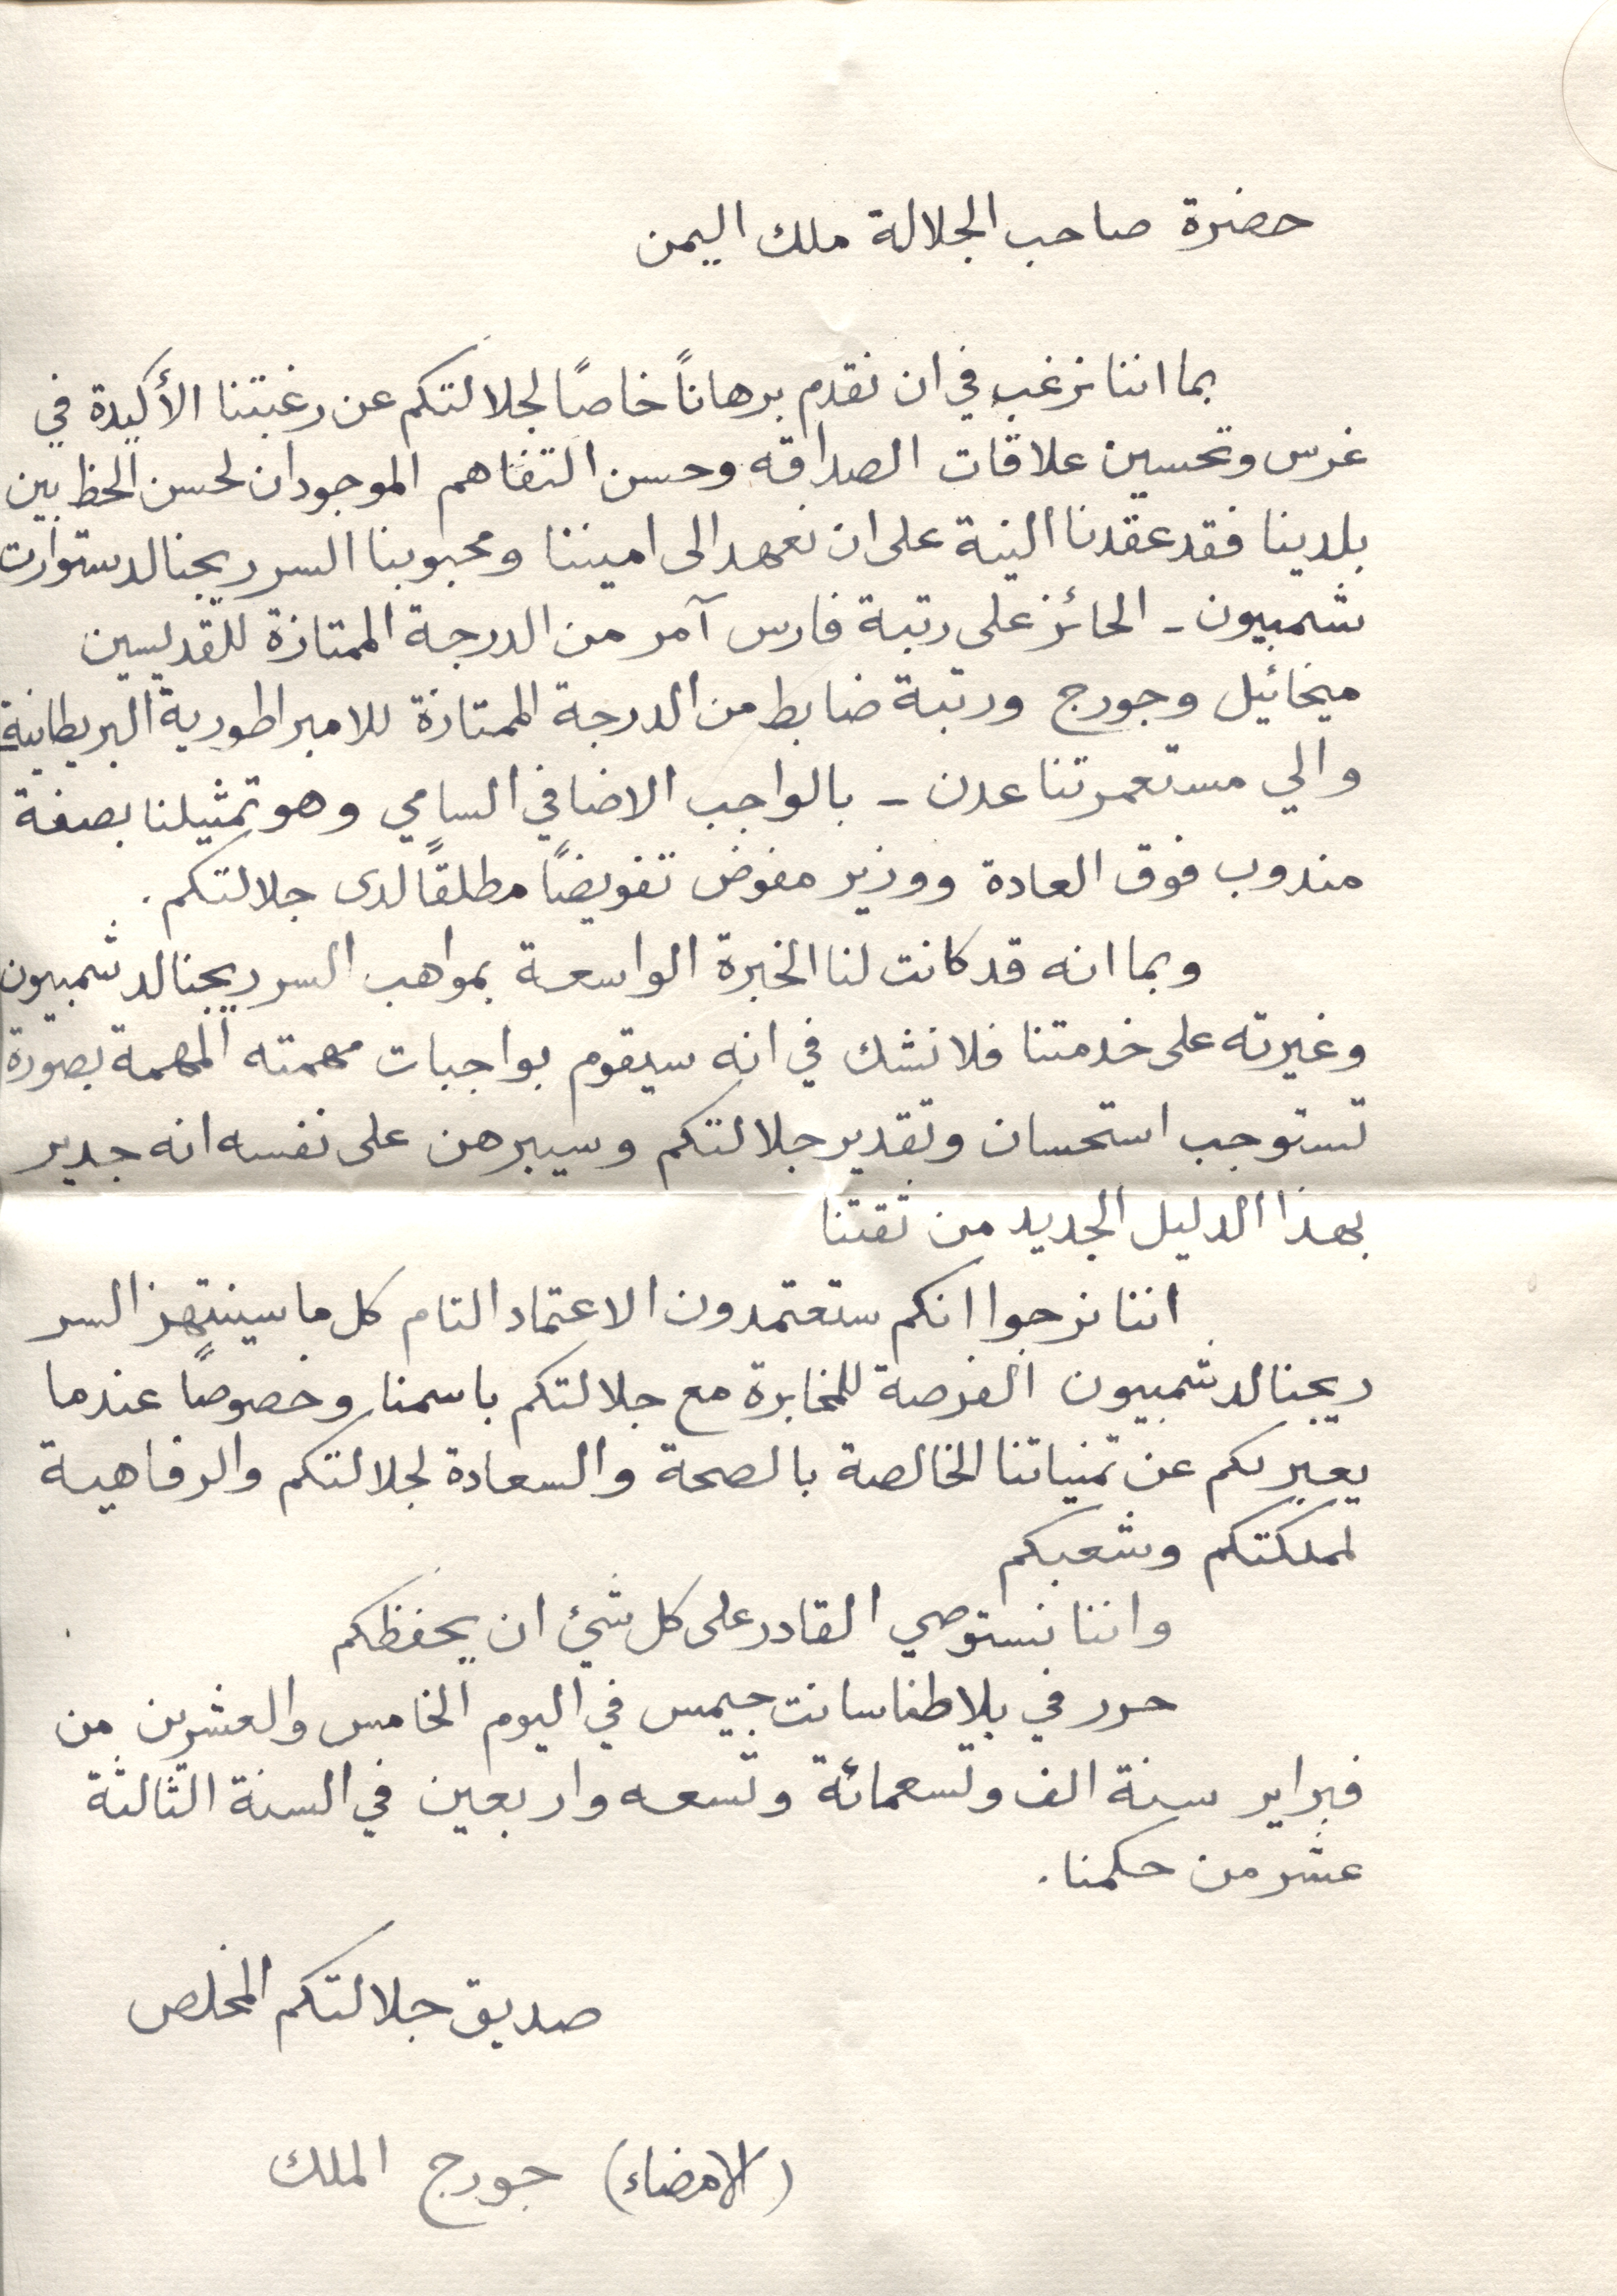 حضرة صاحب الجلالة ملك اليمن
بما اننا نرغب في ان نقدم برهاناً خاصاً لجلالتكم عن رغبتنا الأكيدة في
غرس وتحسين علاقات الصداقه وحسن التفاهم الموجودان لحسن الحظ بين
بلدينا فقد عقدنا النية على ان نعهد الى اميننا ومحبوبنا السر ريجنالد ستوارت
شمبيون - الحائز على رتبة فارس آمر من الدرجة الممتازة للقديسين
ميخائيل وجورج ورتبة ضابط من الدرجة الممتازة للامبراطورية البريطانية
والي مستعمرتنا عدن - بالواجب الاضافي السامي وهو تمثيلنا بصفة
مندوب فوق العادة ووزير مفوض تفويضاً مطلقاً لدى جلالتكم .
وبما انه قد كانت لنا الخبرة الواسعة بمواهب السر ريجنالد شمبيون
وغيرته على خدمتنا فلا نشك في انه سيقوم بواجبات مهمته المهمة بصورة
تستوجب استحسان وتقدير جلالتكم وسيبرهن على نفسه انه جدير
بهذا الدليل الجديد من ثقتنا
اننا نرجوا انكم ستعتمدون الاعتماد التام كل ما سينتهز السر
ريجنالد شمبيون الفرصة للمخابرة مع جلالتكم باسمنا وخصوصاً عندما
يعبر لكم عن تمنياتنا الخالصة بالصحة والسعادة لجلالتكم والرفاهية
لمملكتكم وشعبكم
واننا نستوصي القادر على كل شيئ ان يحفظكم
حرر في بلاطنا سانت جيمس في اليوم الخامس والعشرين من
فبراير سنة الف وتسعمائة وتسعه واربعين في السنة الثالثة
عشر من حكمنا .
صديق جلالتكم المخلص
(الامضاء) جورج الملك